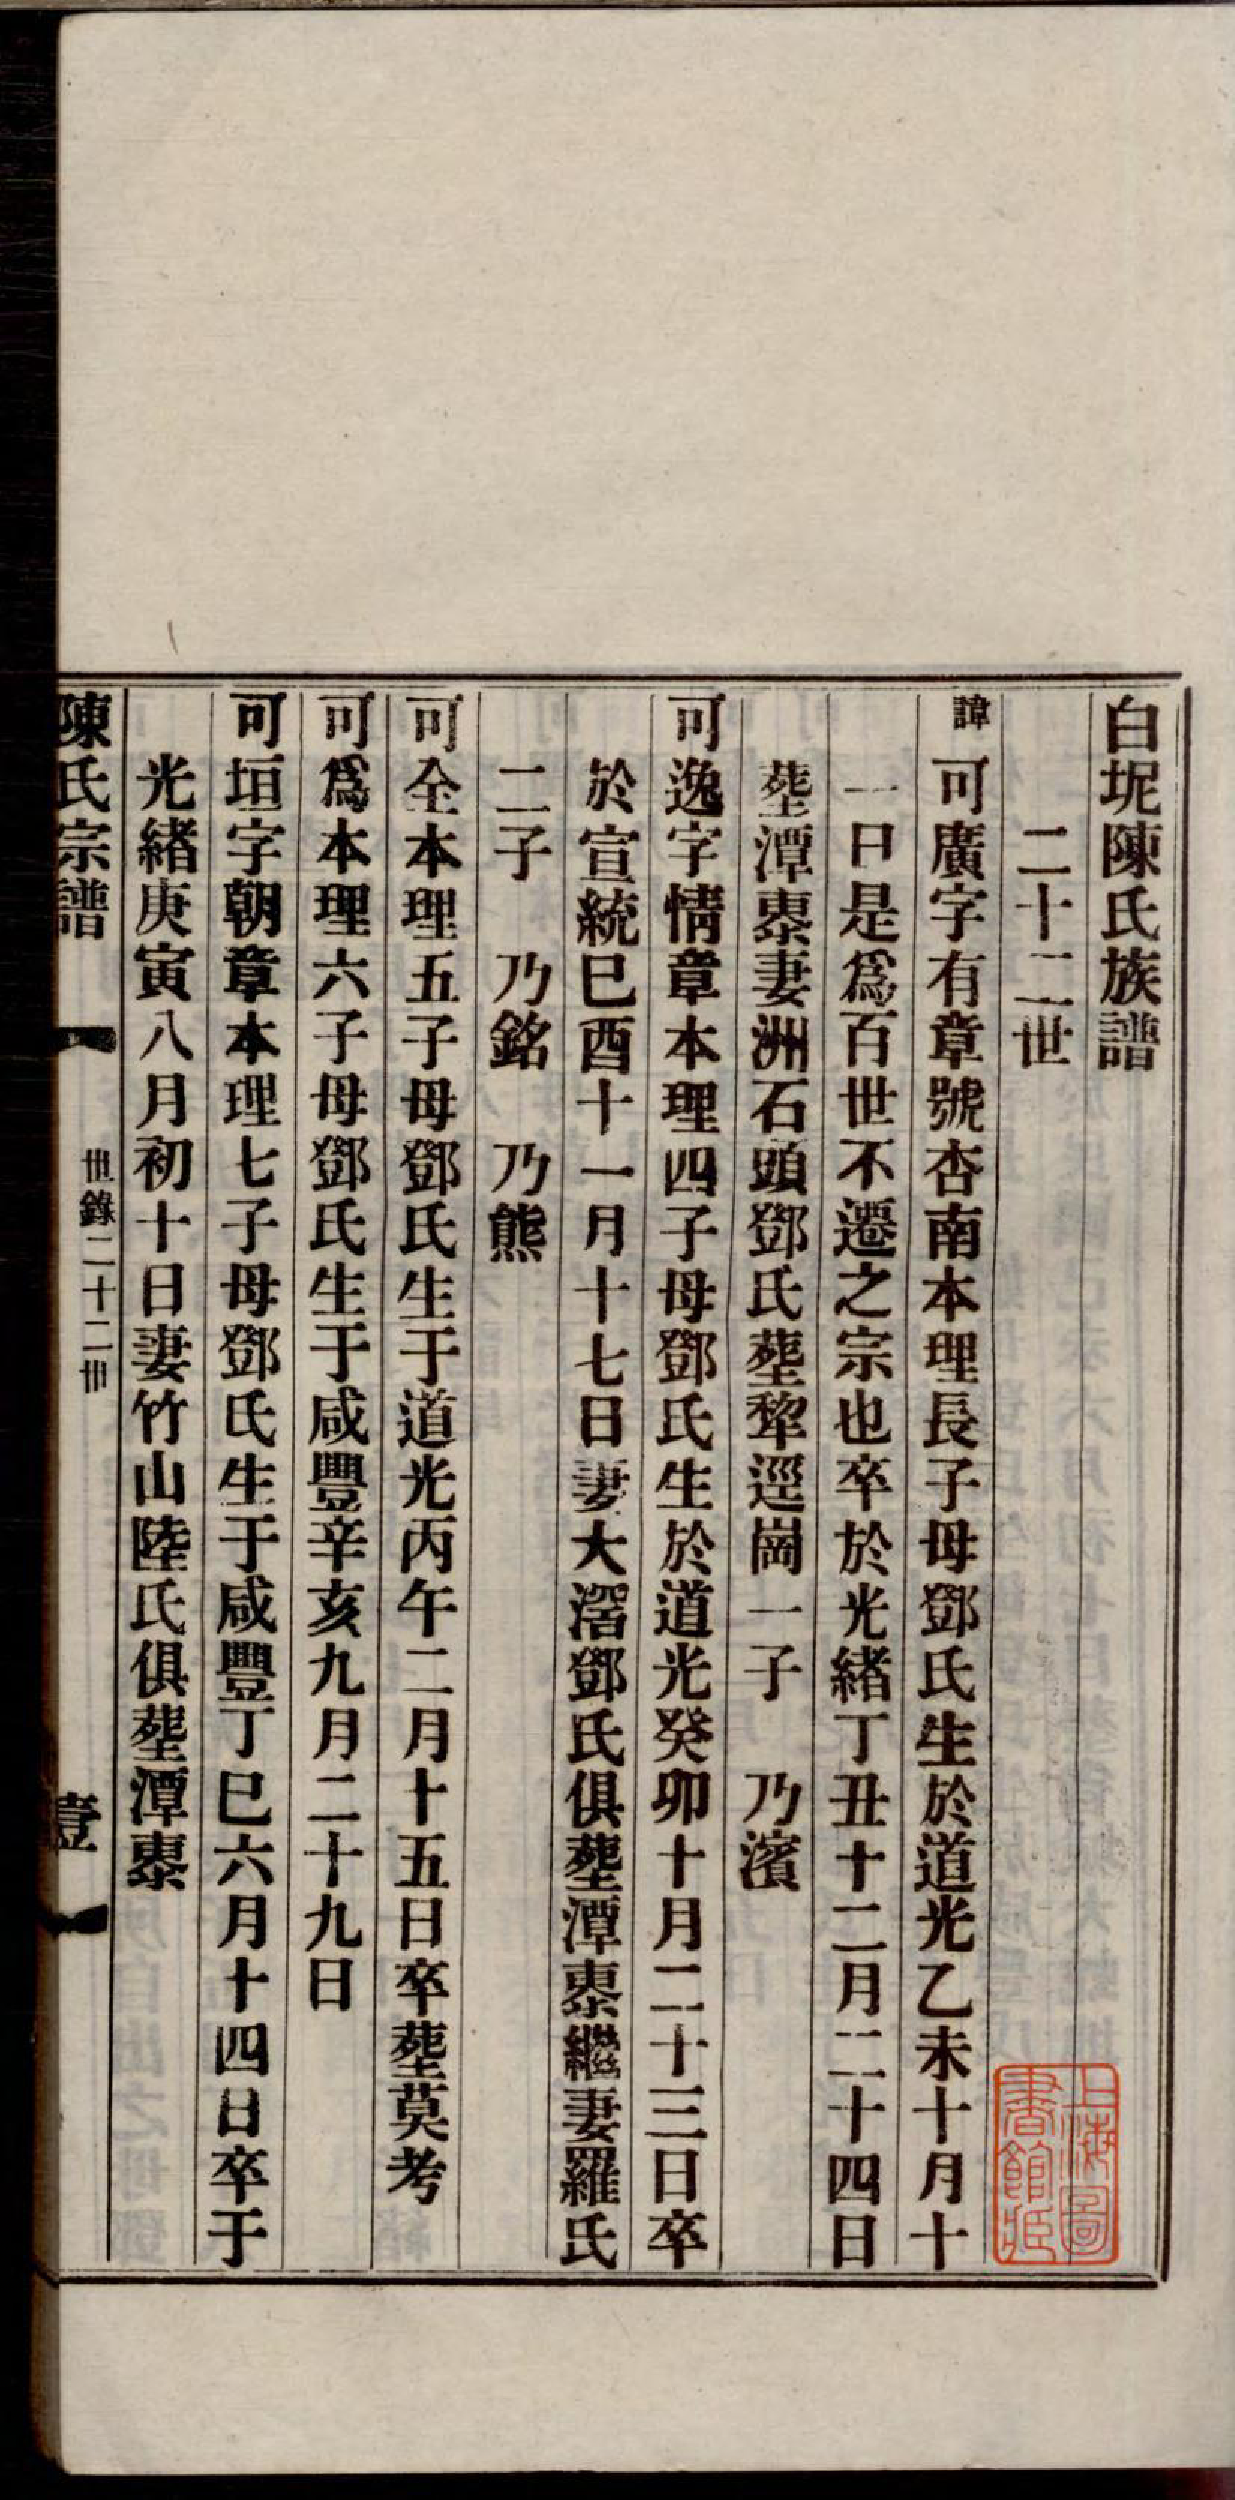 白坭陳氏族譜
二十二世
諱可廣字有章號杏南本理長子母鄧氏生於道光乙未十月十
一日是爲百世不遷之宗也卒於光緒丁丑十二月二十四日
塟潭𣗥妻洲石頭鄧氏塟犂逕崗一子 乃濱
可逸字情章本理四子母鄧氏生於道光癸卯十月二十三日卒
於宣統巳酉十一月十七日妻大滘鄧氏俱塟潭𣗥繼妻羅氏
二子 乃銘 乃熊
可全本理五子母鄧氏生于道光丙午二月十五日卒塟莫考
可爲本理六子母鄧氏生于咸豐辛亥九月二十九日
可垣字朝章本理七子母鄧氏生于咸豐丁巳六月十四日卒于
光緒庚寅八月初十日妻竹山陸氏俱塟潭𣗥
陳氏宗譜 世錄二十二世 壹
上海圖書館藏